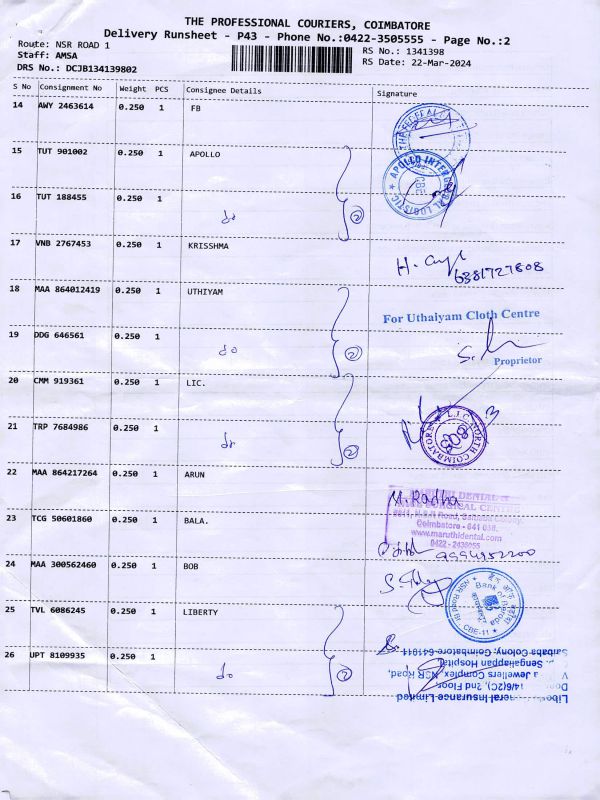 THE PROFESSIONAL COURIERS, COIMBATORE
Delivery Runsheet - P43 - Phone No.:0422-3505555 - Page No.:2
Route: NSR ROAD 1
RS No.: 1341398
Staff: AMSA
RS Date: 22-Mar-2024
DRS No.: DCJB134139802
S No Consignment No Weight PCS Consignee Details Signature
14 AWY 2463614 0.250 1 FB
15 TUT 901002 0.250 1 APOLLO
16 TUT 188455 0.250 1
do
2
APOLLO INTERNATIONAL LOGISTIC
CBE
17 VNB 2767453 0.250 1 KRISSHMA
6381727808
18 MAA 864012419 0.250 1 UTHIYAM
For Uthaiyam Cloth Centre
19 DDG 646561 0.250 1
do
2
Proprietor
20 CMM 919361 0.250 1 LIC.
21 TRP 7684986 0.250 1
do
2
L.I.C. NORTH COIMBATORE
22 MAA 864217264 0.250 1 ARUN
M. Radha
DENTAL
SURGICAL CENTRE
N.S.R Road, Saibaba Colony,
Coimbatore - 641 038.
www.maruthidental.com
0422 - 2435055
23 TCG 50601860 0.250 1 BALA.
24 MAA 300562460 0.250 1 BOB
Bank of Baroda
NSR Road Br
CBE-11
25 TVL 6086245 0.250 1 LIBERTY
26 UPT 8109935 0.250 1
do
2
Saibaba Colony, Coimbatore-641011
Sengaliappan Hospital
a Jewellers Complex, NSR Road,
14/6(2C), 2nd Floor,
General Insurance Limited